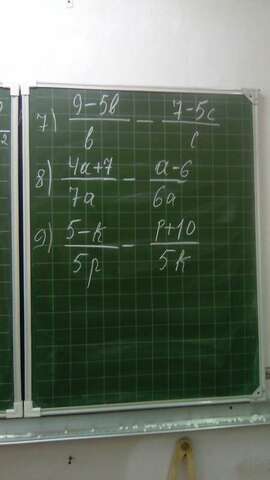 7) (9-5b)/b - (7-5c)/c
8) (4a+7)/7a - (a-6)/6a
9) (5-k)/5p - (p+10)/5k
2